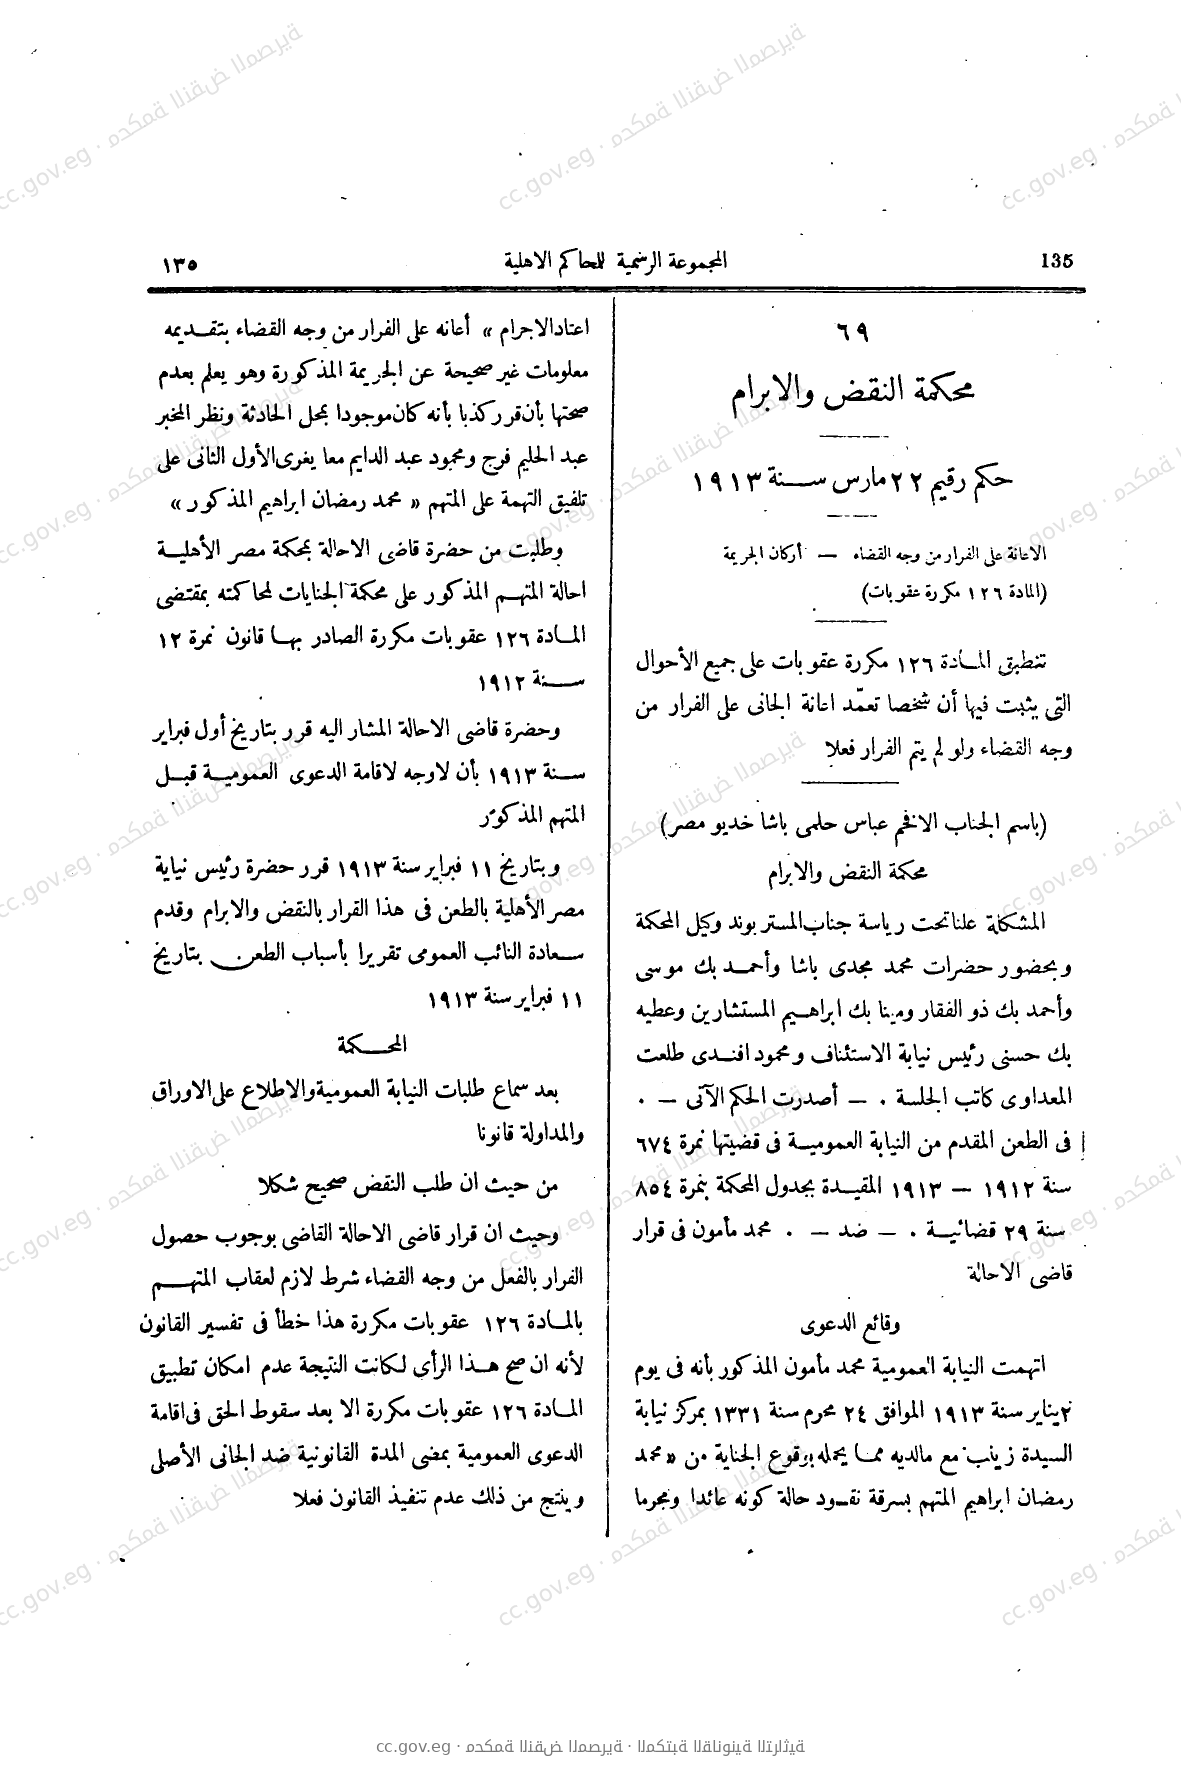 135
المجموعة الرسمية للمحاكم الاهلية
١٣٥
٦٩
محكمة النقض والابرام
حكم رقيم ٢٢ مارس سنة ١٩١٣
الاعانة على الفرار من وجه القضاء — أركان الجريمة
(المادة ١٢٦ مكررة عقوبات)
تنطبق المادة ١٢٦ مكررة عقوبات على جميع الأحوال
التى يثبت فيها أن شخصا تعمّد اعانة الجانى على الفرار من
وجه القضاء ولو لم يتم الفرار فعلا
(باسم الجناب الافخم عباس حلمى باشا خديو مصر)
محكمة النقض والابرام
المشكلة علنا تحت رياسة جناب المستر بوند وكيل المحكمة
وبحضور حضرات محمد مجدى باشا وأحمد بك موسى
وأحمد بك ذو الفقار ومينا بك ابراهيم المستشارين وعطيه
بك حسنى رئيس نيابة الاستئناف ومحمود افندى طلعت
المعداوى كاتب الجلسة . — أصدرت الحكم الآتى — .
فى الطعن المقدم من النيابة العمومية فى قضيتها نمرة ٦٧٤
سنة ١٩١٢ — ١٩١٣ المقيدة بجدول المحكمة بنمرة ٨٥٤
سنة ٢٩ قضائية . — ضد — . محمد مأمون فى قرار
قاضى الاحالة
وقائع الدعوى
اتهمت النيابة العمومية محمد مأمون المذكور بأنه فى يوم
٢ يناير سنة ١٩١٣ الموافق ٢٤ محرم سنة ١٣٣١ بمركز نيابة
السيدة زينب مع مالديه مما يحمله بوقوع الجناية من « محمد
رمضان ابراهيم المتهم بسرقة نقود حالة كونه عائدا ومجرما
اعتاد الاجرام » أعانه على الفرار من وجه القضاء بتقديمه
معلومات غير صحيحة عن الجريمة المذكورة وهو يعلم بعدم
صحتها بأن قرر كذبا بأنه كان موجودا بمحل الحادثة ونظر المخبر
عبد الحليم فرج ومحمود عبد الدايم معا يغرى الأول الثانى على
تلفيق التهمة على المتهم « محمد رمضان ابراهيم المذكور »
وطلبت من حضرة قاضى الاحالة بمحكمة مصر الأهلية
احالة المتهم المذكور على محكمة الجنايات لمحاكمته بمقتضى
المادة ١٢٦ عقوبات مكررة الصادر بها قانون نمرة ١٢
سنة ١٩١٢
وحضرة قاضى الاحالة المشار اليه قرر بتاريخ أول فبراير
سنة ١٩١٣ بأن لا وجه لاقامة الدعوى العمومية قبل
المتهم المذكور
وبتاريخ ١١ فبراير سنة ١٩١٣ قرر حضرة رئيس نيابة
مصر الأهلية بالطعن فى هذا القرار بالنقض والابرام وقدم
سعادة النائب العمومى تقريرا بأسباب الطعن بتاريخ
١١ فبراير سنة ١٩١٣
المحكمة
بعد سماع طلبات النيابة العمومية والاطلاع على الاوراق
والمداولة قانونا
من حيث ان طلب النقض صحيح شكلا
وحيث ان قرار قاضى الاحالة القاضى بوجوب حصول
الفرار بالفعل من وجه القضاء شرط لازم لعقاب المتهم
بالمادة ١٢٦ عقوبات مكررة هذا خطأ فى تفسير القانون
لأنه ان صح هذا الرأى لكانت النتيجة عدم امكان تطبيق
المادة ١٢٦ عقوبات مكررة الا بعد سقوط الحق فى اقامة
الدعوى العمومية بمضى المدة القانونية ضد الجانى الأصلى
وينتج من ذلك عدم تنفيذ القانون فعلا
cc.gov.eg · محكمة النقض المصرية · المكتبة القانونية التراثية